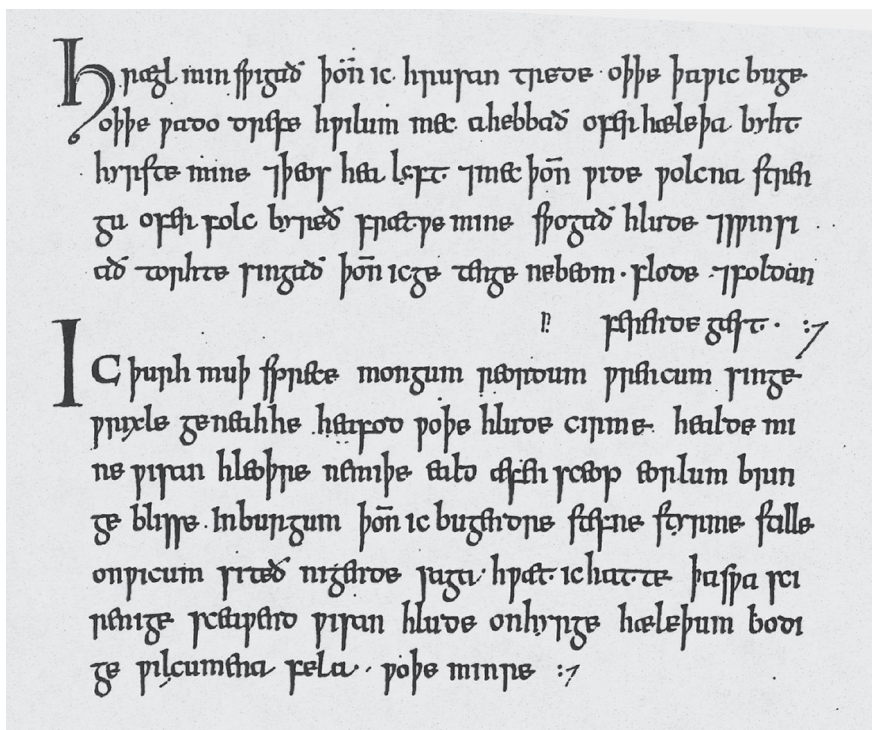 Hrægl min sƿigað þon̄ ic hrusan trede · oþþe þaƿic buge
oþþe ƿado drefe hƿilum mec ahebbað ofer hæleþa byht
hyrste mine ⁊þeos hea lyft · ⁊mec þon̄ ƿide ƿolcna stren
gu ofer folc byreð frætƿe mine sƿogað hlude ⁊sƿinsi
að torhte singað þon̄ icge tenge nebeom · flode ⁊foldan
ferende gæst · :⁊
IC þurh muþ sprece mongum reordum ƿrencum singe
ƿrixle geneahhe heafod ƿoþe hlude cirme · healde mi
ne ƿisan hleoþre nemiþe eald æfen sceop eorlum brin
ge blisse · Inburgum þon̄ ic bugendre stefne styrme stille
onƿicum siteð nigende saga · hƿæt ichatte þasƿa sci
renige sceaƿend ƿisan hlude onhyrge hæleþum bodi
ge ƿilcumena fela · ƿoþe minre :⁊